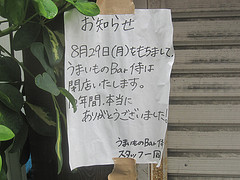 お知らせ
8月29日(月)をもちまして、
うまいものBar侍は
閉店いたします。
年間、本当に
ありがとうございました!
うまいものBar侍
スタッフ一同